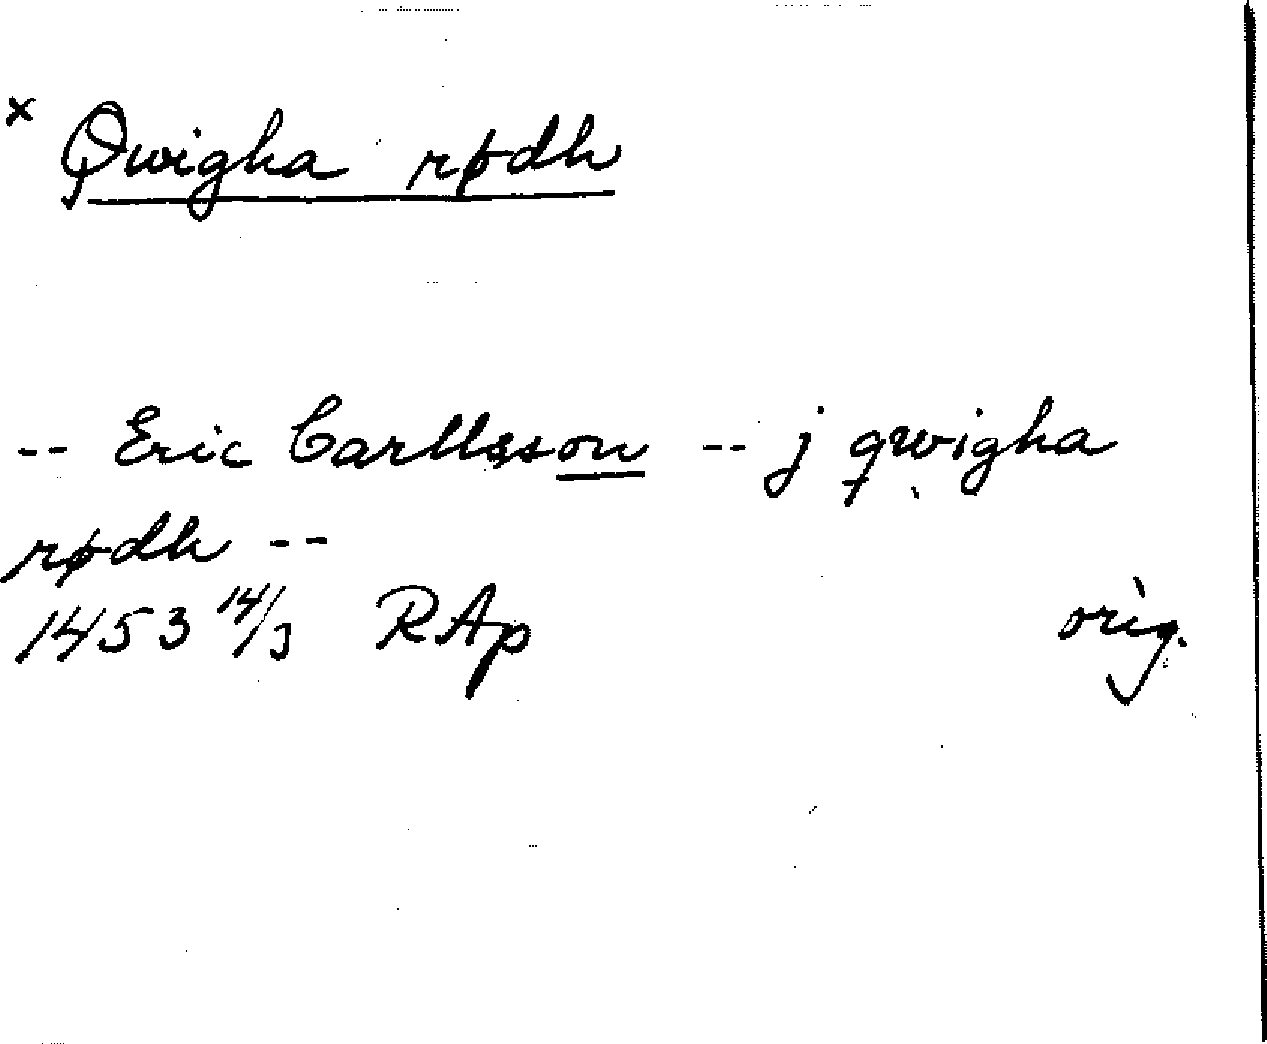 x Qwigha rødh
-- Eric Carllsson -- j qwigha
rødh --
1453 14/3 RAp orig.